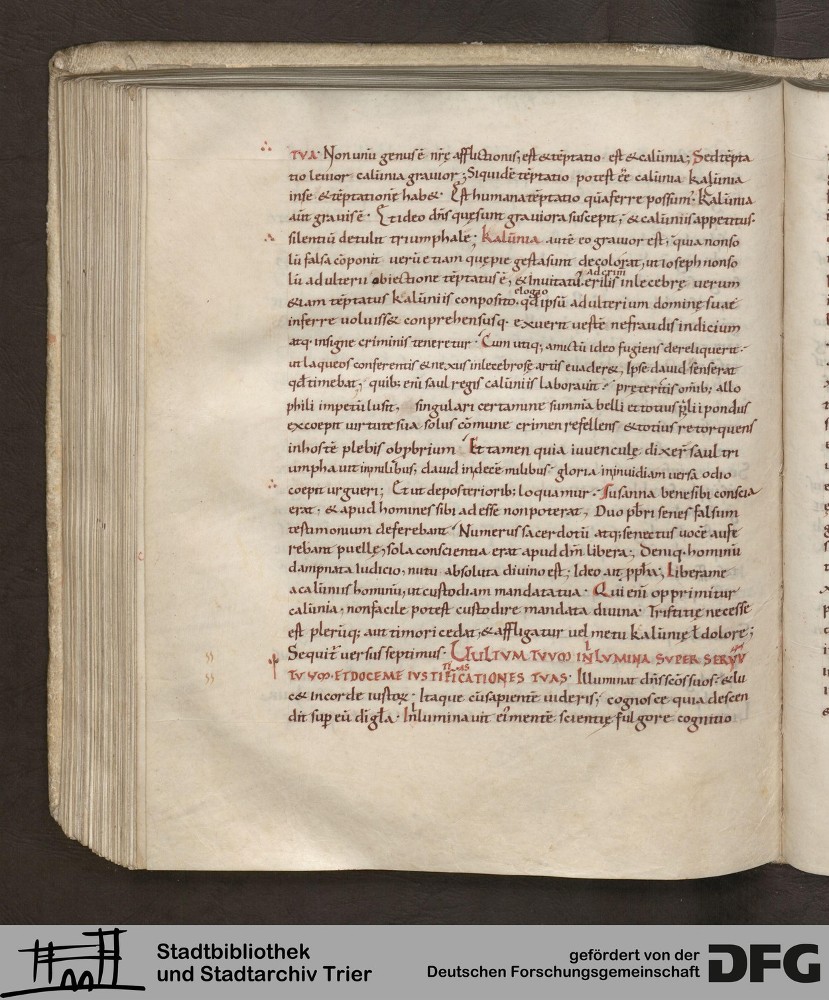 TUA· Non unū genus ē nr̄ę afflictionis, est & tēptatio est & calūnia; Sed tēpta
tio levior calūnia gravior; Siquidē tēptatio potest ēe calūnia kalūnia
in se & tēptationē hab&· Est humana tēptatio quā ferre possum· Kalūnia
aūt gravis ē· Et ideo dn̄s quę sunt graviora suscepit; & calūniis appetitus·
silentiū detulit triumphale; kalūnia autē eo gravior est, quia non so
lū falsa cōponit verū etiam quę pie gesta sunt decolorat, ut ioseph non so
ad crim
lū adulterii obiectione tēptatus ē, & invitatū erilis inlecebrę verum
elogio
&iam tēptatus kalūniis conposito· qd̄ ipsū adulterium dominę suae
inferre voluiss& conprehensusq· exuerit vestē ne fraudis indicium
atq· insigne criminis teneretur· Cum utiq; amictū ideo fugiens dereliquerit·
ut laqueos conferentis & nexus inlecebrose artis evader&, Ipse david senserat
qd̄ timebat, quib; eni saul regis calūniis laboravit· pręteritis om̄ib; allo
phili impetū lusit, singulari certamine summa belli et totius p̄lii pondus
excoepit virtute sua solus cōmune crimen refellens & totius retorquens
in hostē plebis obpbrium Et tamen quia iuvenculę dixer̄ saul tri
umphavit in milibus; david in decē milibus· gloria in invidiam versa odio
coepit urgueri; Et ut de posteriorib; loquamur· Susanna bene sibi conscia
erat, & apud homines sibi adesse non poterat, Duo pb̄ri senes falsum
testimonium deferebant Numerus sacerdotū atq; senectus vocē aufe
rebant puellę, sola conscientia erat apud dm̄ libera, Deniq· hominū
dampnata Iudicio, nutu absoluta divino est; Ideo ait ppha; Libera me
a calūniis hominū, ut custodiam mandata tua· Qui eni opprimitur
calūnia, non facile potest custodire mandata divina· Tristitię necesse
est plerūq; aut timori cedat, & affligatur vel metu kalūnię ł dolore;
Sequit̄ versus septimus· VULTUM TUUM INLUMINA SUPER SERVU
TUUM· ET DOCE ME IUSTIFICATIONES TUAS· Illuminat dn̄s sc̄os suos· & lu
c& in corde iustoꝝ· Itaque cū sapientē videris; cognosce quia descen
dit sup eū di gl̄a· Inluminavit ei mentē scientię fulgore cognitio
Stadtbibliothek
und Stadtarchiv Trier
gefördert von der
Deutschen Forschungsgemeinschaft
DFG